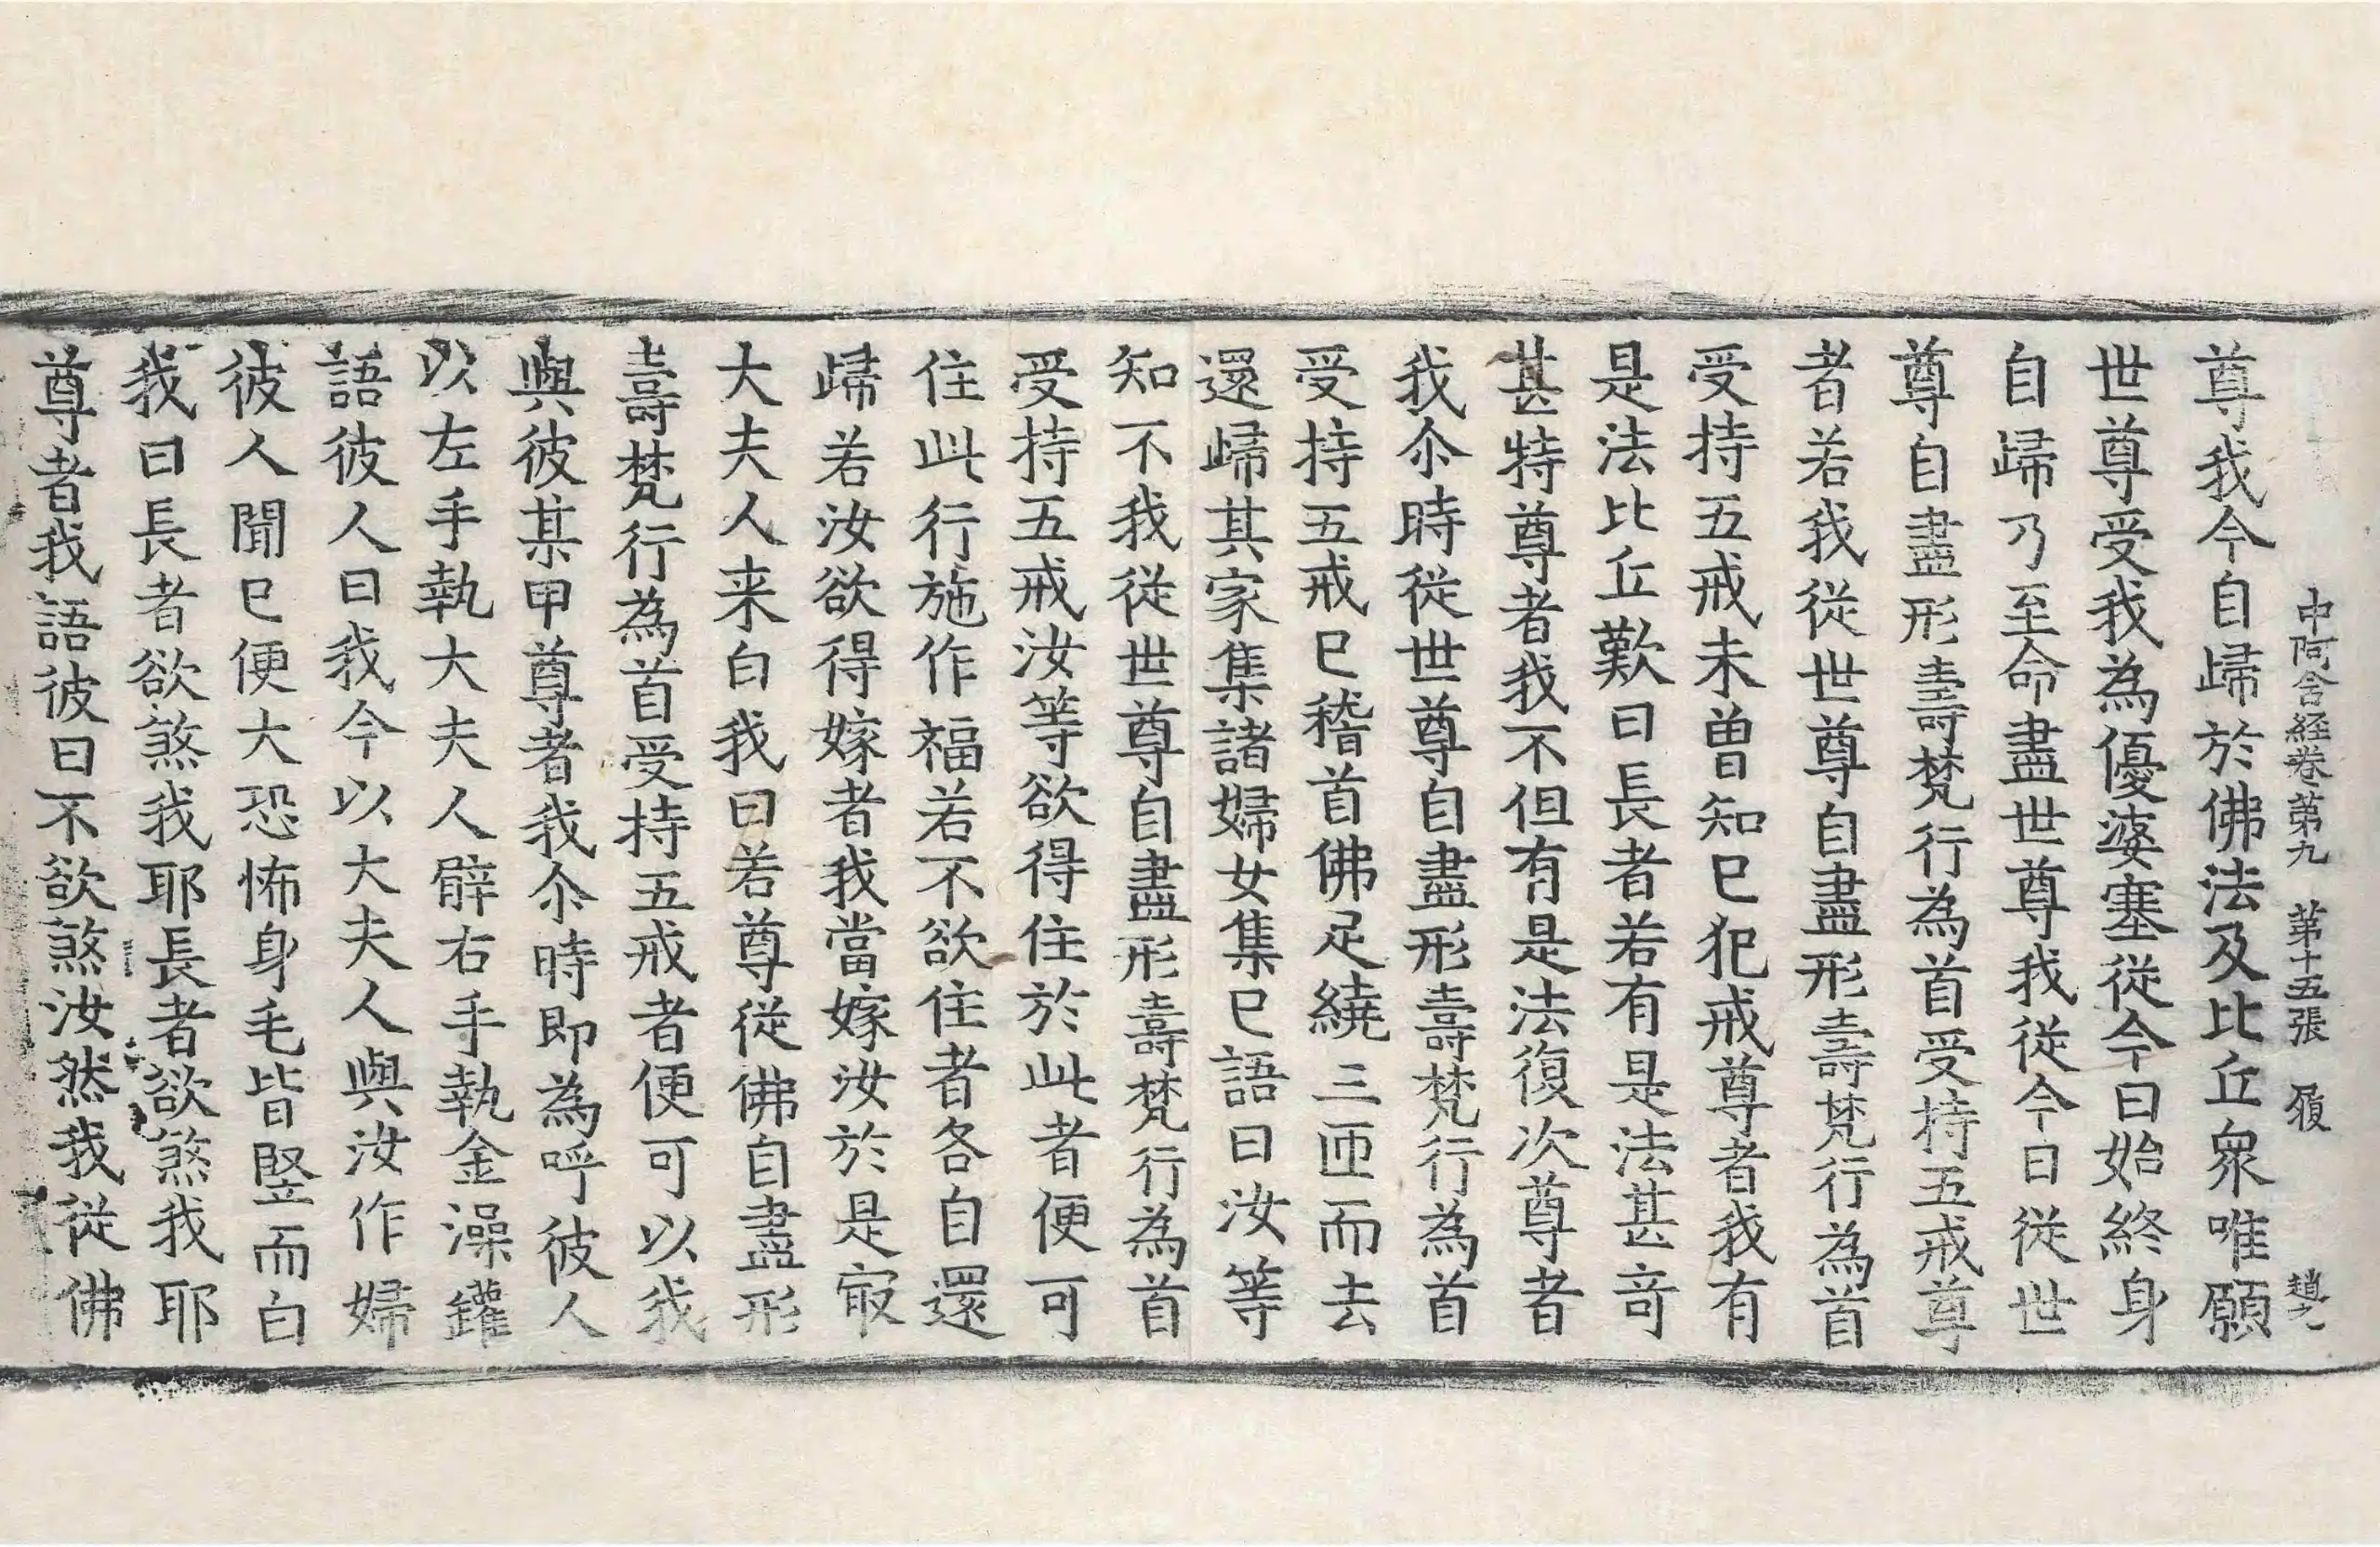 中阿含経卷第九 第十五張 履 趙九
尊我今自歸於佛法及比丘衆唯願
世尊受我為優婆塞從今日始終身
自歸乃至命盡世尊我從今日從世
尊自盡形壽梵行為首受持五戒尊
者若我從世尊自盡形壽梵行為首
受持五戒未曽知已犯戒尊者我有
是法比丘歎曰長者若有是法甚竒
甚特尊者我不但有是法復次尊者
我尒時從世尊自盡形壽梵行為首
受持五戒已稽首佛足繞三匝而去
還歸其家集諸婦女集已語曰汝等
知不我從世尊自盡形壽梵行為首
受持五戒汝等欲得住於此者便可
住此行施作福若不欲住者各自還
歸若汝欲得嫁者我當嫁汝於是㝡
大夫人来白我曰若尊從佛自盡形
壽梵行為首受持五戒者便可以我
與彼某甲尊者我尒時即為呼彼人
以左手執大夫人臂右手執金澡鑵
語彼人曰我今以大夫人與汝作婦
彼人聞已便大恐怖身毛皆竪而白
我曰長者欲煞我耶長者欲煞我耶
尊者我語彼曰不欲煞汝然我從佛